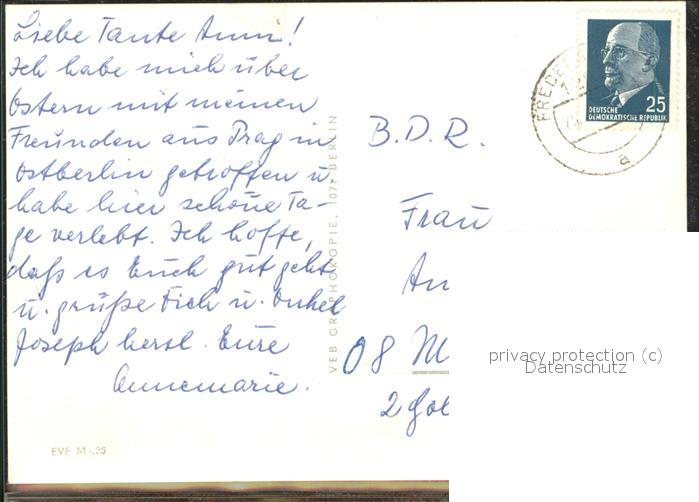 Liebe Tante Anni!
Ich habe mich über
Ostern mit meinen
Freunden aus Prag in
Ostberlin getroffen u.
habe hier schöne Ta-
ge verlebt. Ich hoffe,
daß es Euch gut geht
u. grüße Dich u. Onkel
Joseph herzl. Eure
Annemarie.
EVP M -,25
VEB GRAPHOKOPIE, 1071 BERLIN
DEUTSCHE
DEMOKRATISCHE REPUBLIK
25
B.D.R.
Frau
An
08 M
privacy protection (c)
Datenschutz